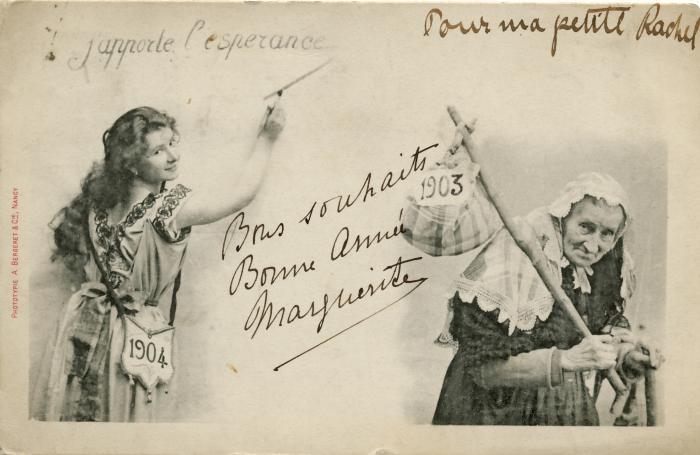 Pour ma petite Rachel
j'apporte l'esperance
1903
Bons souhaits
Bonne Année
Marguerite
1904
PHOTOTYPIE A. BERGERET & Cie, NANCY